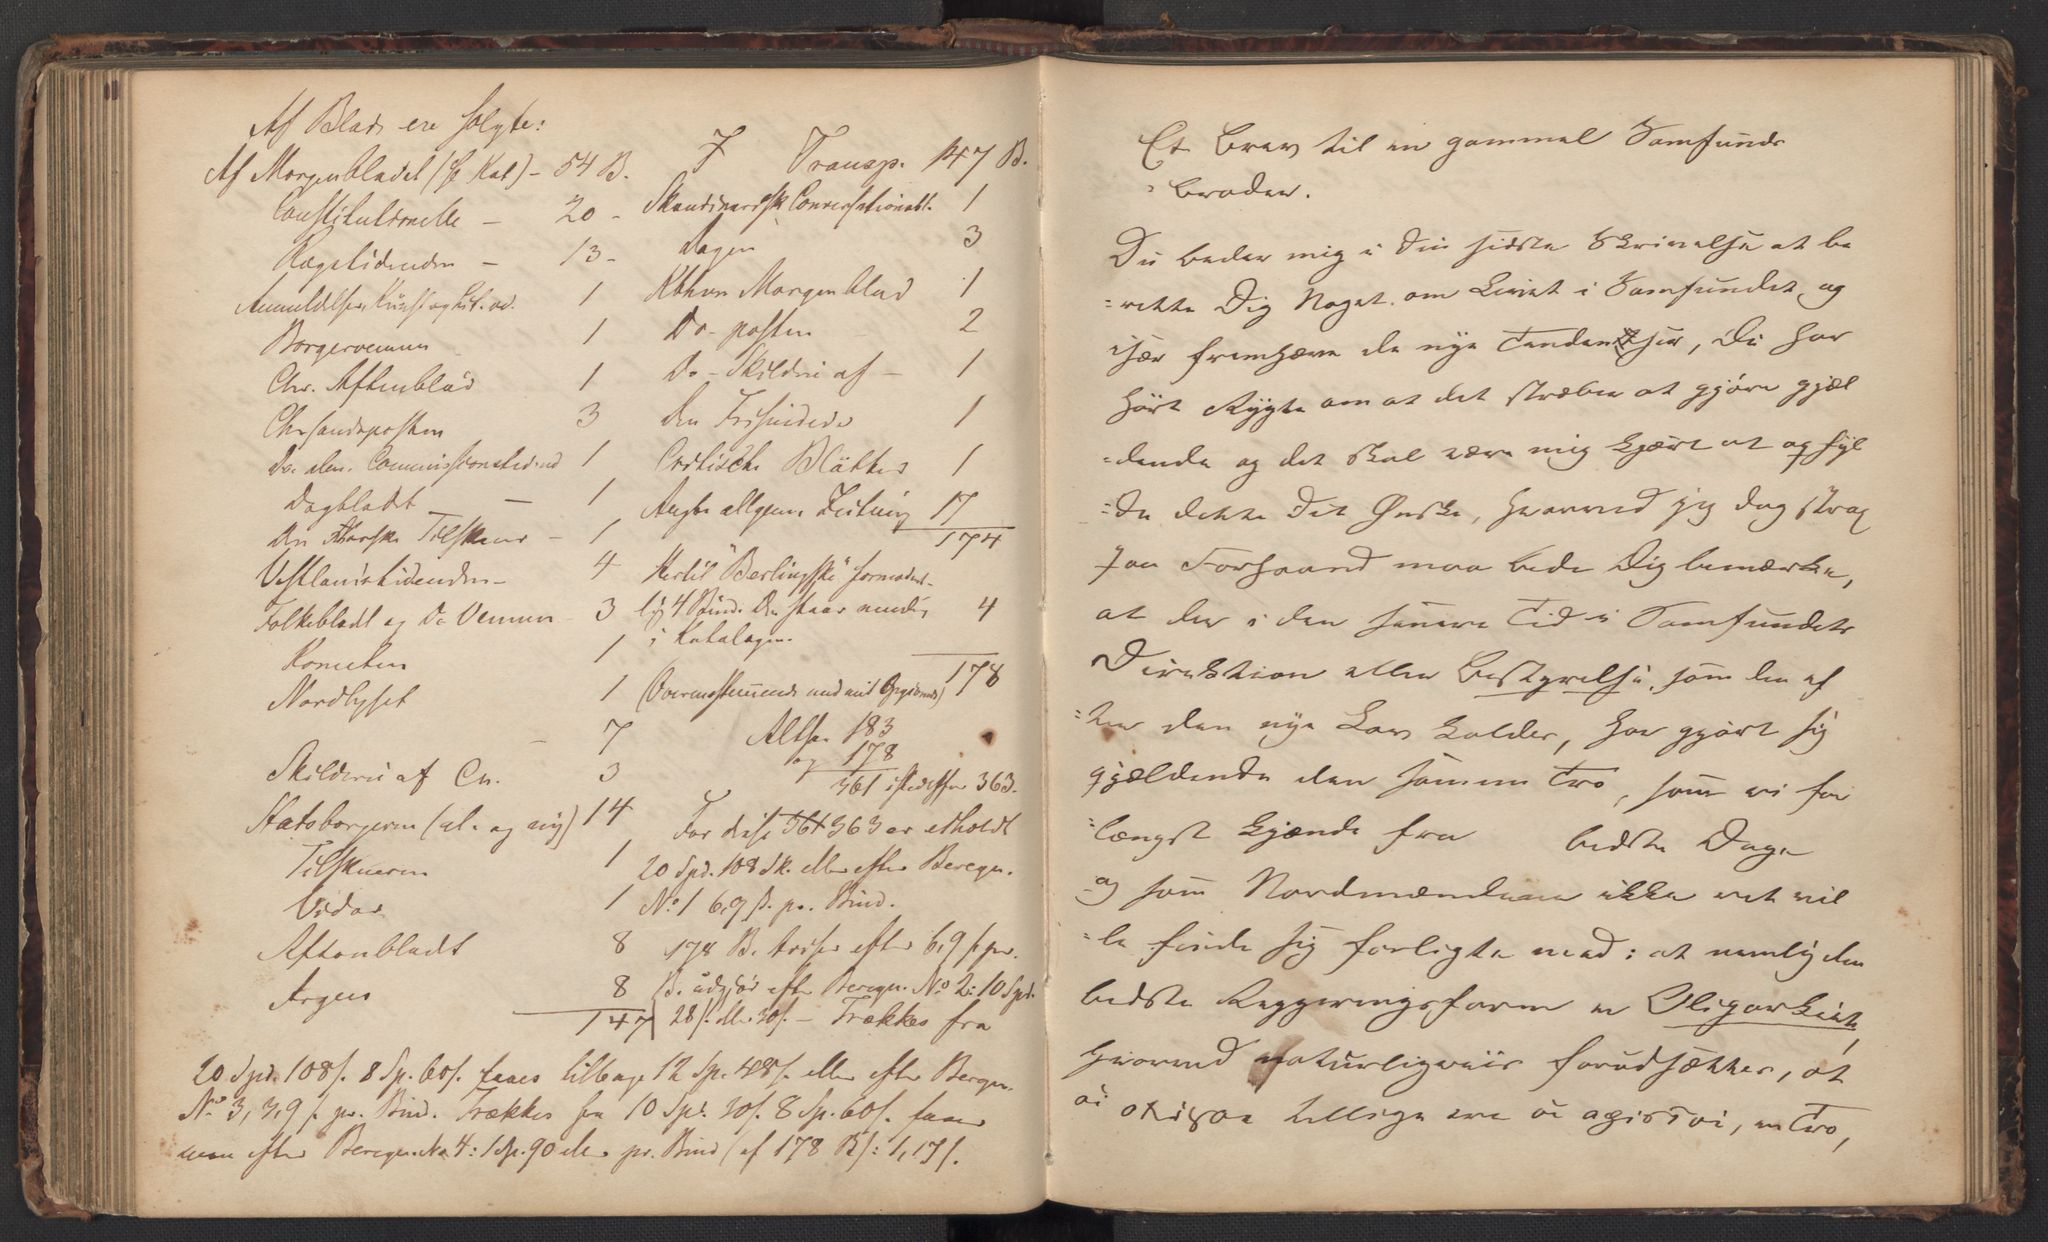 Af Blade ere solgte:
Af Morgenbladet (se Kat) - 54 B.
Constitutionelle - 20 -
Rigstidenden - 13 -
Anmeldelser, Kunst og Lit. ad. 1
Borgervennen 1
Chr. Aftenblad 1
Chrsandsposten 3
Do alm. Commissionstidend 1
Dagbladet - 1
Den Norske Tilskuer - 1
Vestlandstidenden - 4
Folkebladet og Do Vennen 3
Kometen 1
Nordlyset 1
- 7
Skilderie af Ch. 3
Statsborgeren (al. og ny) 14
Tilskueren 1
Vidar 1
Aftonbladet 8
Argus 8
147
Transp. 147 B.
Skandinavisk Conversationsbl. 1
Dagen 3
Kbhvn Morgenblad 1
Do - posten 2
Do - Skilderi af - 1
Den Frisindede 1
Critische Blätter 1
Augsb. allgem. Zeitung 17
174
Hertil "Berlingske" formodent-
lig 4 Bind. Der staar nemlig 4
i Katalogen.
178
(Overensstemmende med mit Opgivende)
Altsaa 183
og 178
361 istedetfor 363.
For disse 361 363 er udholdt
20 Spd. 108 Sk. eller efter Beregn.
No. 1 6,9 ß. pr. Bind.
178 B. efter 6,9 ß pr.
B. udgjør efter Beregn. No 2: 10 Spd.
28 ß. eller 30 ß. - Trækkes fra
20 Spd. 108 ß. 8 Sp. 60 ß. faaes tilbage 12 Sp. 48 ß. eller efter Beregn.
No 3, 3,9 ß. pr. Bind. Trækkes fra 10 Spd. 30 ß. 8 Sp. 60 ß. faaer
man efter Beregn. No 4: 1 Sp. 90 eller pr. Bind (af 178 B): 1,17 ß.
Et Brev til en gammel Samfunds
= broder.
Du beder mig i Din sidste Skrivelse at be
= rette Dig Noget om Livet i Samfundet og
især fremhæve de nye Tendentser, Du har
hørt Rygte om at det stræber at gjøre gjæl
= dende og det skal være mig kjært at opfyl
= de dette Dit Ønske, hvorved jeg dog strax
paa Forhaand maa bede Dig bemærke,
at der i den senere Tid i Samfundets
Direktion eller Bestyrelse, som den ef
= ter den nye Lov kaldes, har gjort sig
gjældende den samme Tro, som vi for
= længst kjende fra bedste Dage
og som Nordmændene ikke ret vil
= le finde sig forligte med: at nemlig den
bedste Regjeringsform er Oligarkiet,
hvorved naturligviis forudsættes, at
οἱ ὀλίγοι tillige ere οἱ ἄριστοι, en Tro,